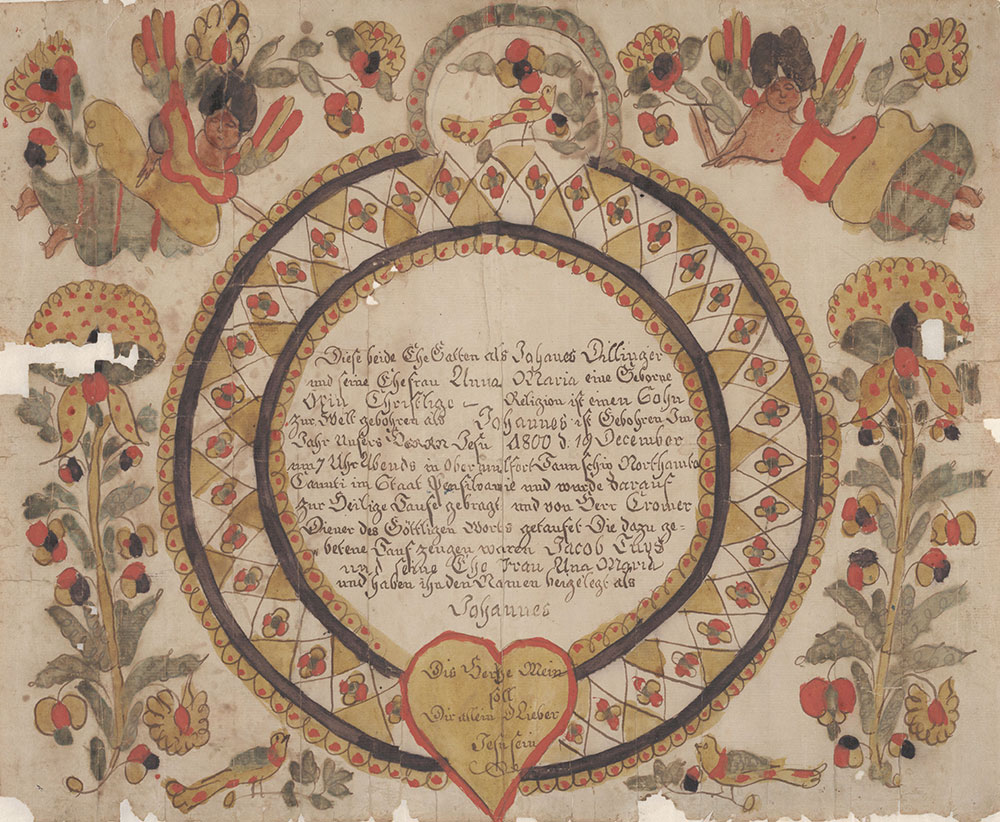 Diese beide EheGatten als Johanes Dillinger
und seine Ehefrau Anna Maria eine Geborne
Christlige Religion ist einen Sohn
zur Welt gebohren als Johannes ist Gebohren Im
Jahr Unsers Herrn Jesu 1800 d. 19 December
um 7 Uhr Abends in Obermilfort Taunschip Northamton
Caunti im Staat Pensilvanie und wurde darauf
zur Heilige Taufe gebragt und von Herr Cromer
Diener des Göttligen Worts getaufet Die dazu ge-
betene Tauf zeugen waren Jacob
und seine Ehe Frau Ana Maria
und haben ihn den Namen beigelegt als
Johannes
Dis Hertze Mein
soll
Dir allein O Lieber
Jesu sein